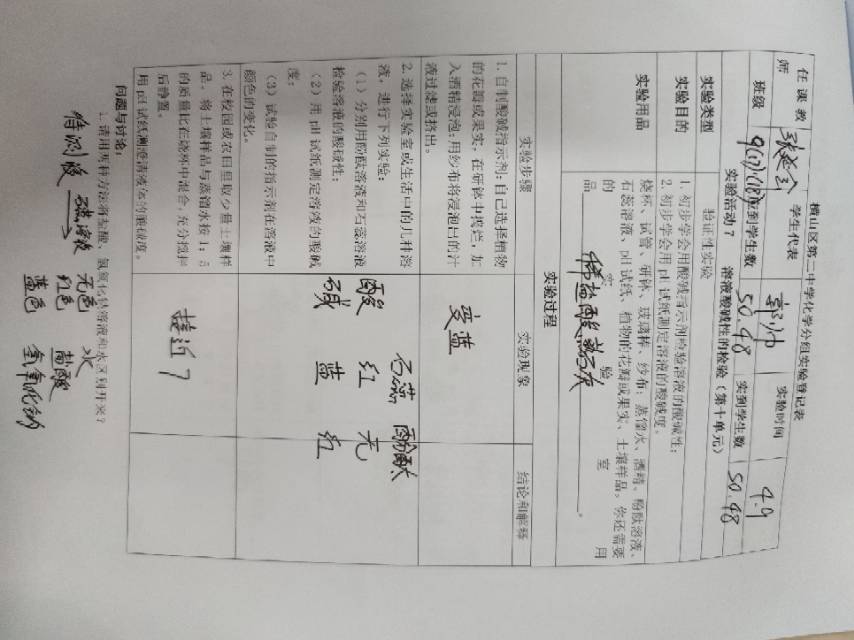 横山区第二中学化学分组实验登记表
任课教师 学生代表 郭帅 实验时间 4.9
班级 9(17)(18) 应到学生数 50.48 实到学生数 50.48
实验活动7 溶液酸碱性的检验(第十单元)
实验类型 验证性实验
实验目的 1. 初步学会用酸碱指示剂检验溶液的酸碱性;
2. 初步学会用 pH 试纸测定溶液的酸碱度。
实验用品 烧杯、试管、研钵、玻璃棒、纱布;蒸馏水、酒精、酚酞溶液、
石蕊溶液、pH 试纸、植物的花瓣或果实、土壤样品,你还需要
的实验室用
品 稀盐酸,熟石灰 。
实验过程
实验步骤 实验现象 结论和解释
1. 自制酸碱指示剂:自己选择植物
的花瓣或果实,在研钵中捣烂,加
入酒精浸泡;用纱布将浸泡出的汁
液过滤或挤出。
变蓝
2. 选择实验室或生活中的几种溶
液,进行下列实验:
(1)分别用酚酞溶液和石蕊溶液
检验溶液的酸碱性;
(2)用 pH 试纸测定溶液的酸碱
度;
(3)试验自制的指示剂在溶液中
颜色的变化。
石蕊 酚酞
酸 红 无
碱 蓝 红
3. 在校园或农田里取少量土壤样
品,将土壤样品与蒸馏水按 1:5
的质量比在烧杯中混合,充分搅拌
后静置。
用 pH 试纸测澄清液体的酸碱度。
接近7
问题与讨论:
1. 请用两种方法将盐酸、氢氧化钙溶液和水区别开来?
待测液 石蕊溶液 无色 水
红色 盐酸
蓝色 氢氧化钙